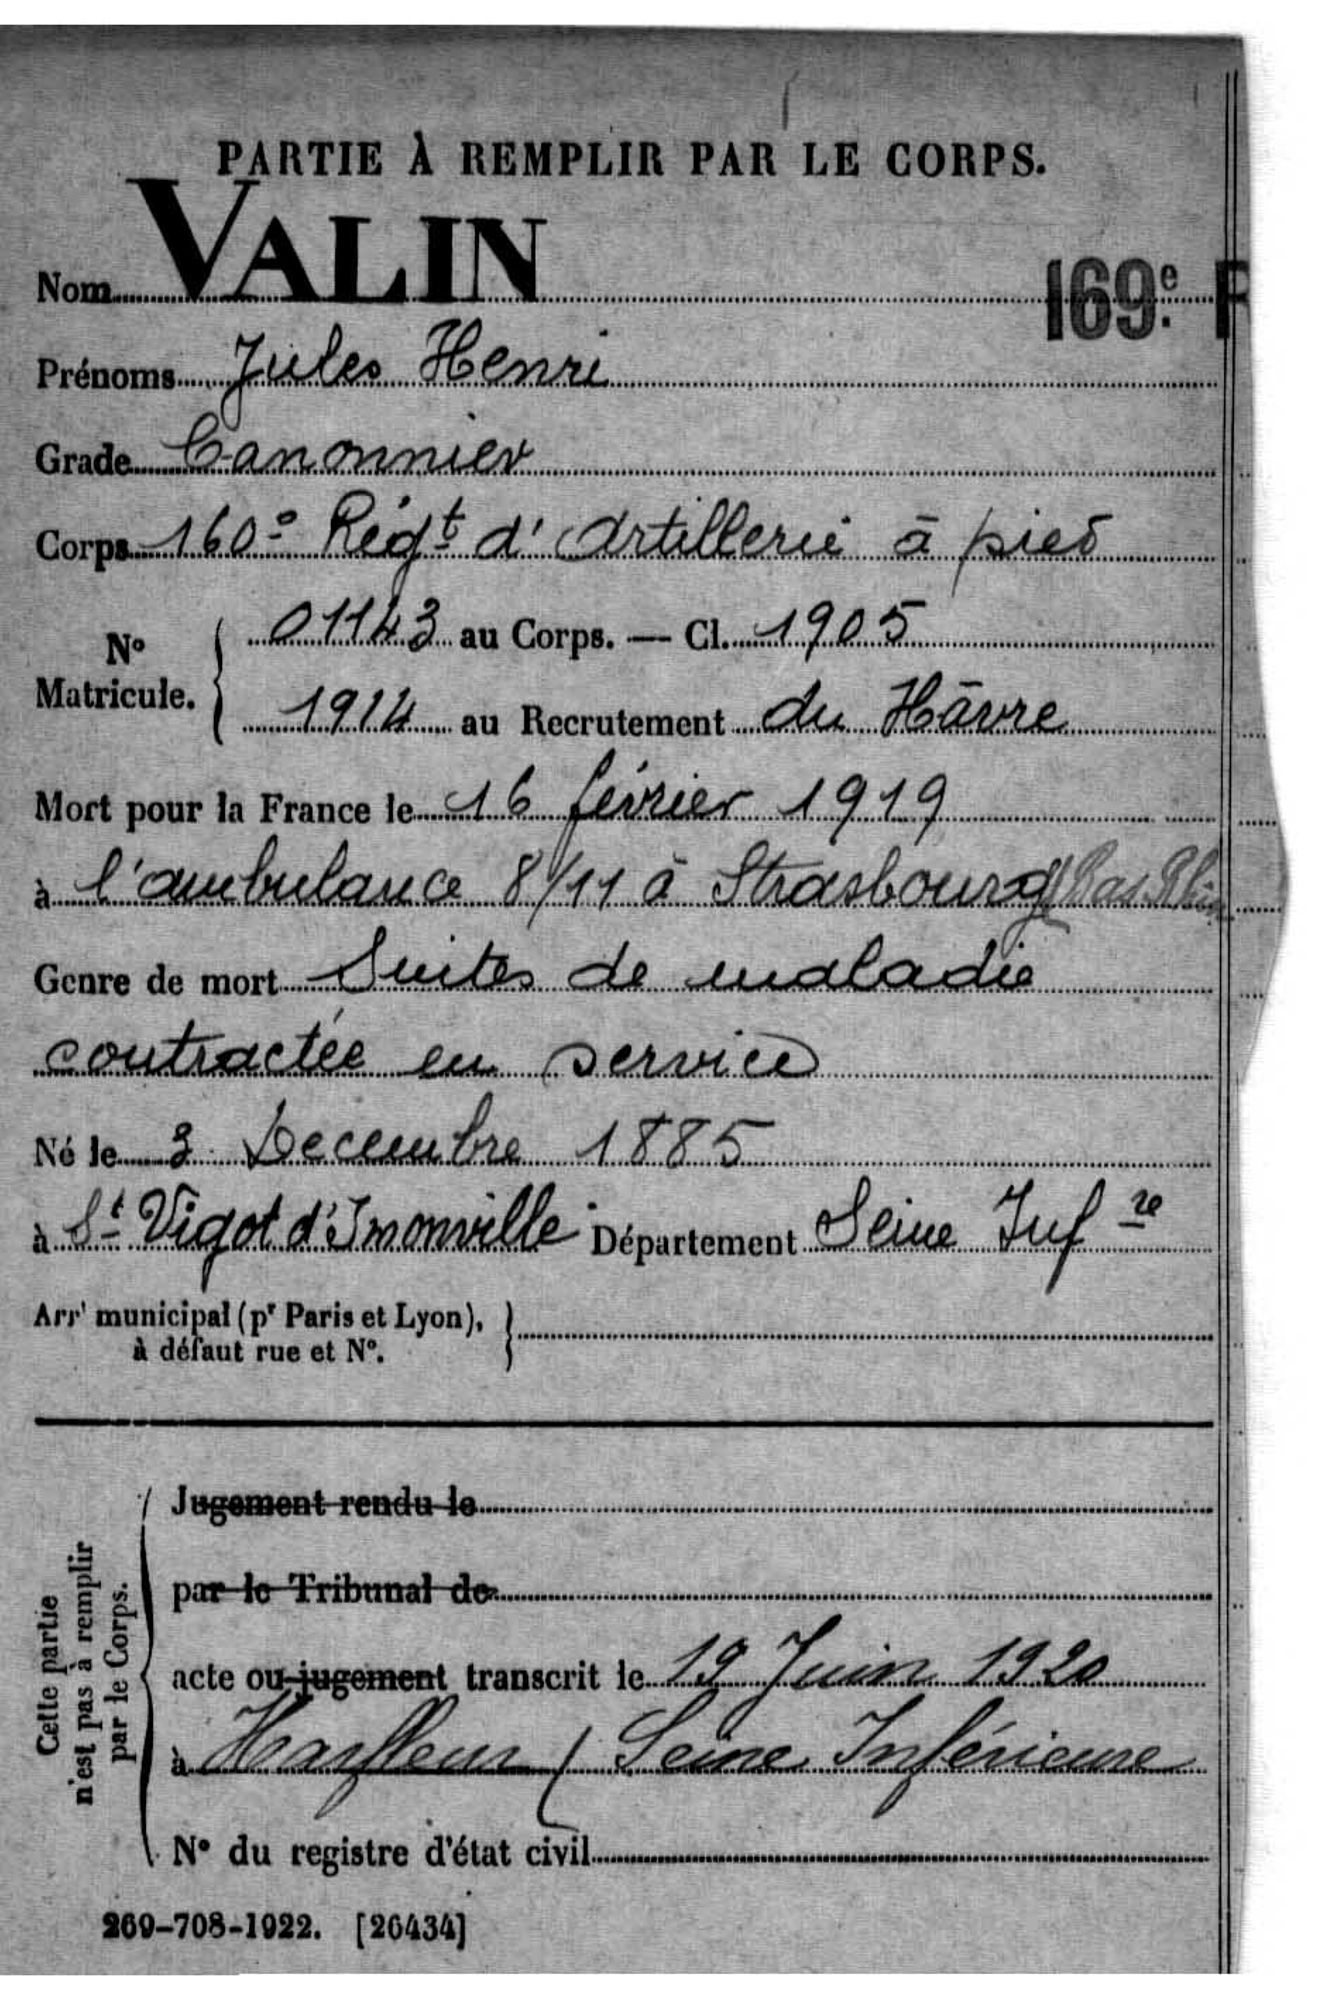 PARTIE À REMPLIR PAR LE CORPS.
Nom VALIN
169e.
Prénoms Jules Henri
Grade Canonnier
Corps 160e Régt d'Artillerie à pied
No Matricule. 01143 au Corps. — Cl. 1905
1914 au Recrutement du Hâvre
Mort pour la France le 16 février 1919
à l'ambulance 8/11 à Strasbourg (Bas Rhin
Genre de mort Suites de maladie
contractée en service
Né le 3 Decembre 1885
à St Vigot d'Imonville Département Seine Infre
Arrt municipal (pr Paris et Lyon),
à défaut rue et No.
Cette partie
n'est pas à remplir
par le Corps.
Jugement rendu le
par le Tribunal de
acte ou jugement transcrit le 19 Juin 1920
à Harfleur (Seine Inférieure
No du registre d'état civil
269-708-1922. [26434]